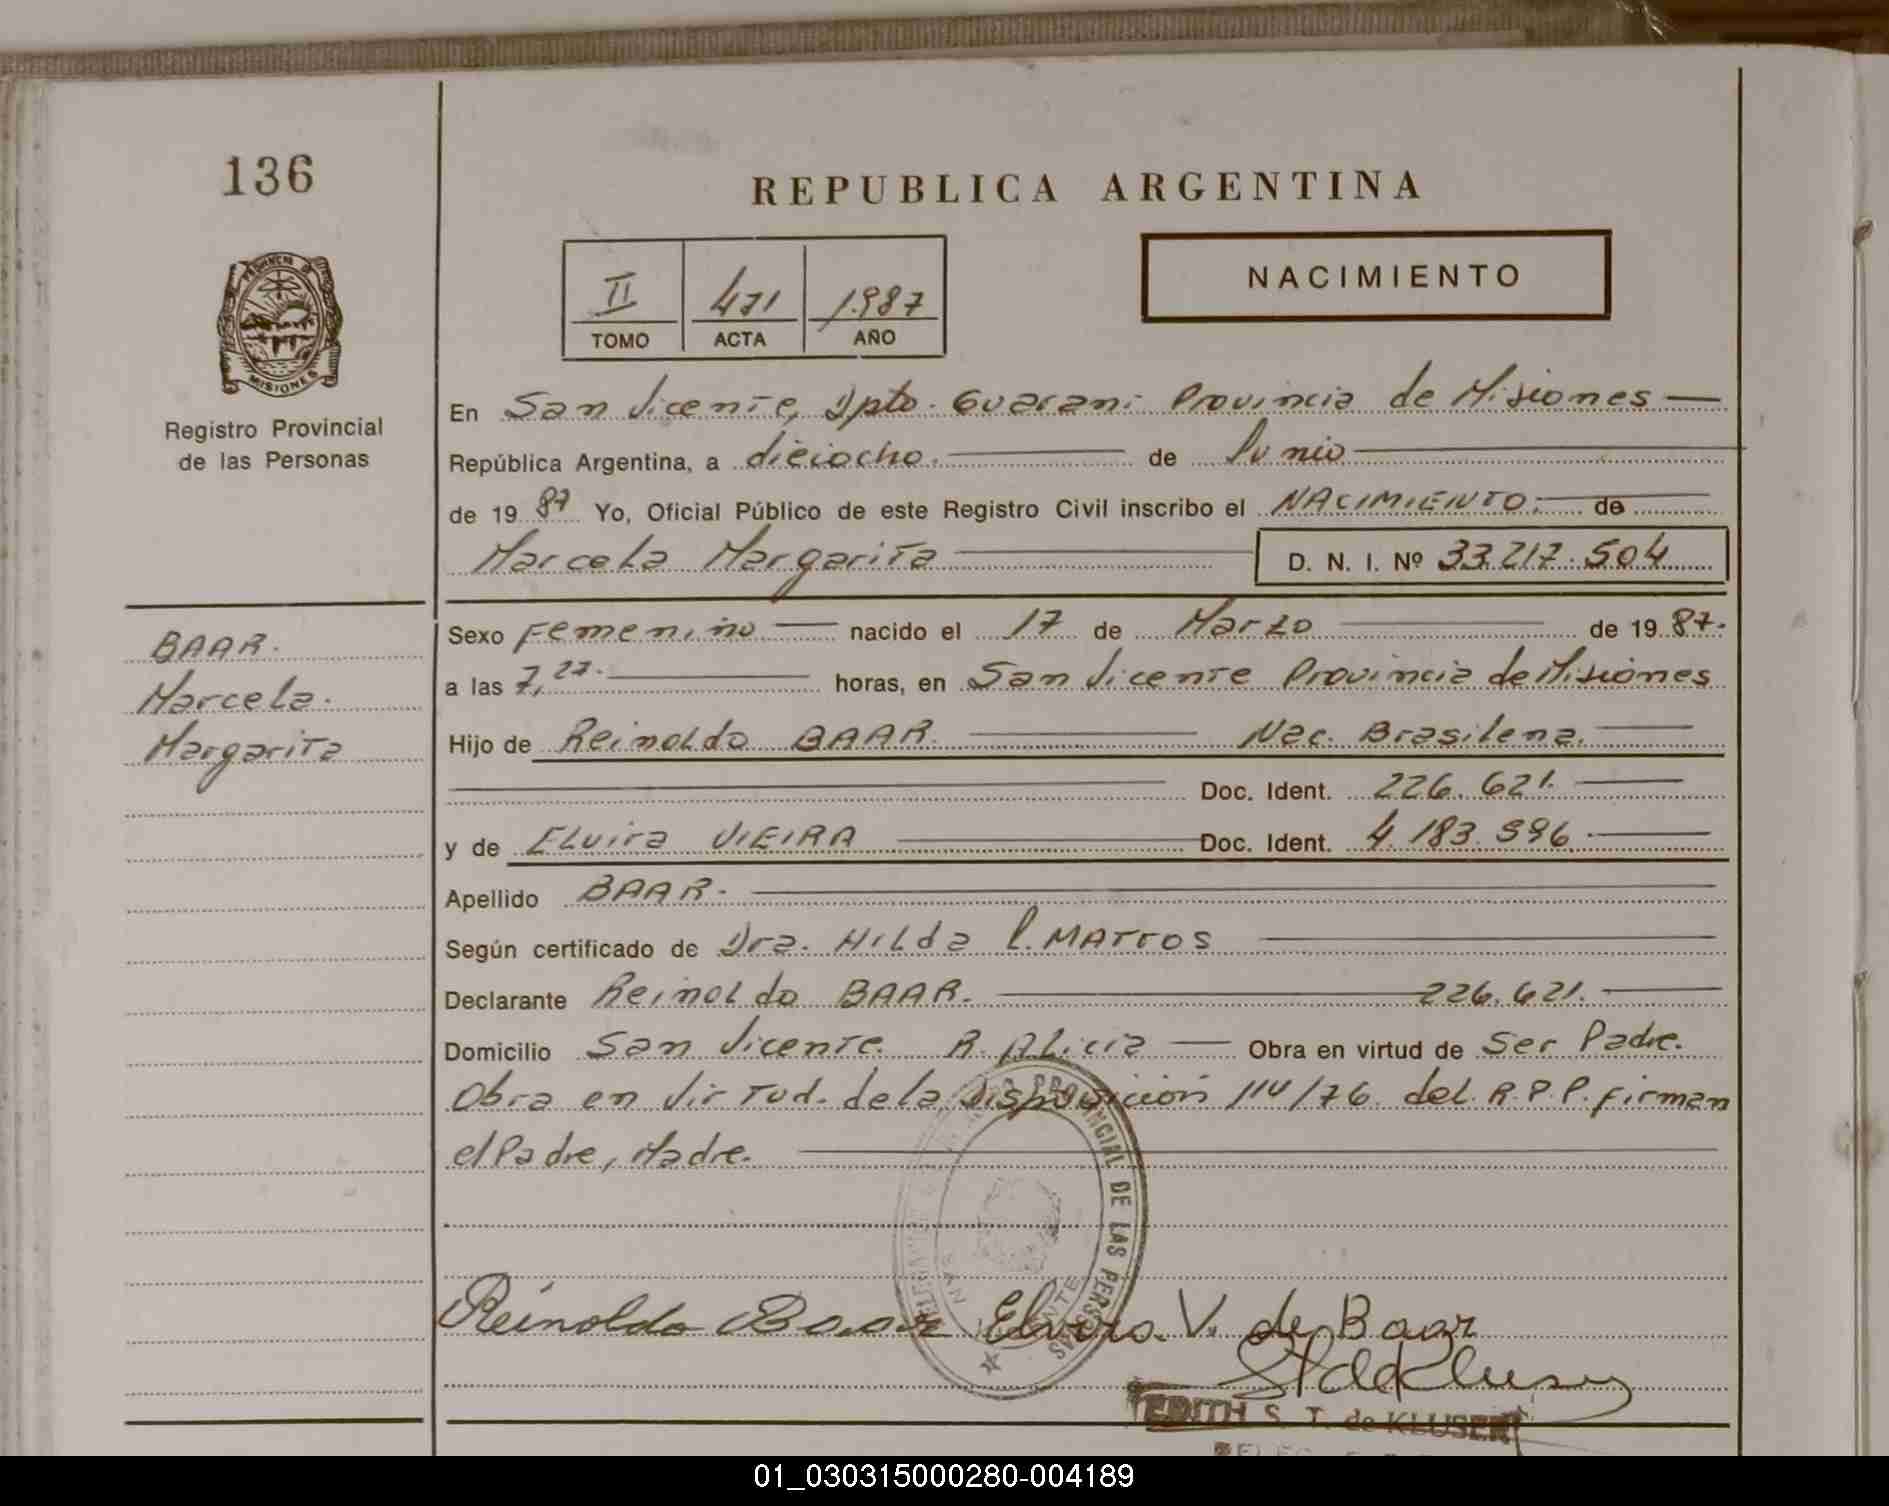 136
REPUBLICA ARGENTINA
NACIMIENTO
II 471 1.987
TOMO ACTA AÑO
PROVINCIA DE
MISIONES
Registro Provincial
de las Personas
En San Vicente, Dpto. Guarani Provincia de Misiones
República Argentina, a dieciocho. de Junio
de 19 87 Yo, Oficial Público de este Registro Civil inscribo el NACIMIENTO. de
Marcela Margarita D. N. I. Nº 33.217.504
BAAR.
Marcela.
Margarita
Sexo Femenino nacido el 17 de Marzo de 19 87.
a las 7,27. horas, en San Vicente Provincia de Misiones
Hijo de Reinoldo BAAR. Nac. Brasilena.
Doc. Ident. 226.621.
y de Elvira VIEIRA Doc. Ident. 4.183.996.
Apellido BAAR.
Según certificado de Dra. Hilda MATTOS
Declarante Reinoldo BAAR. 226.621.
Domicilio San Vicente. R. Alicia Obra en virtud de Ser Padre.
Obra en Virtud. de la Disposición 114/76. del. R.P.P. firman
el Padre, Madre.
PROVINCIAL DE LAS PERSONAS
Reinoldo Baar Elvira. V. de Baar
EDITH S. T. de KLUSER
01_030315000280-004189